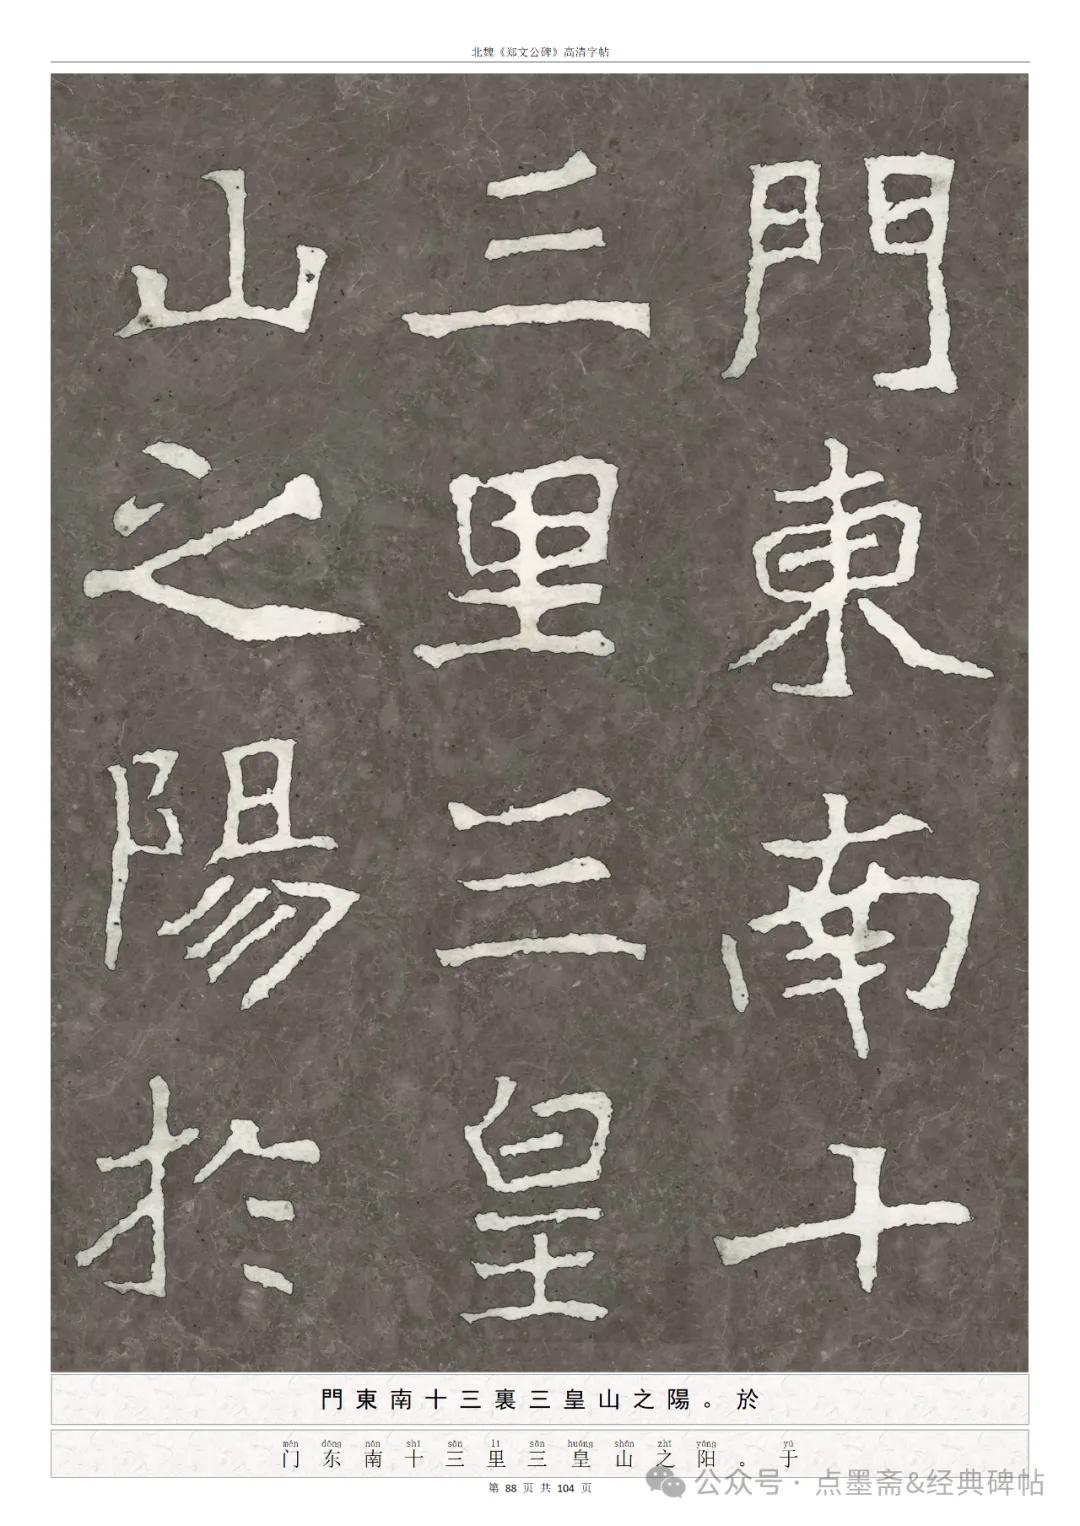 北魏《郑文公碑》高清字帖
門東南十
三里三皇
山之陽於
門東南十三裏三皇山之陽。於
mén dōng nán shí sān lǐ sān huáng shān zhī yáng yú
门东南十三里三皇山之阳。于
第 88 页 共 104 页
公众号·点墨斋&经典碑帖